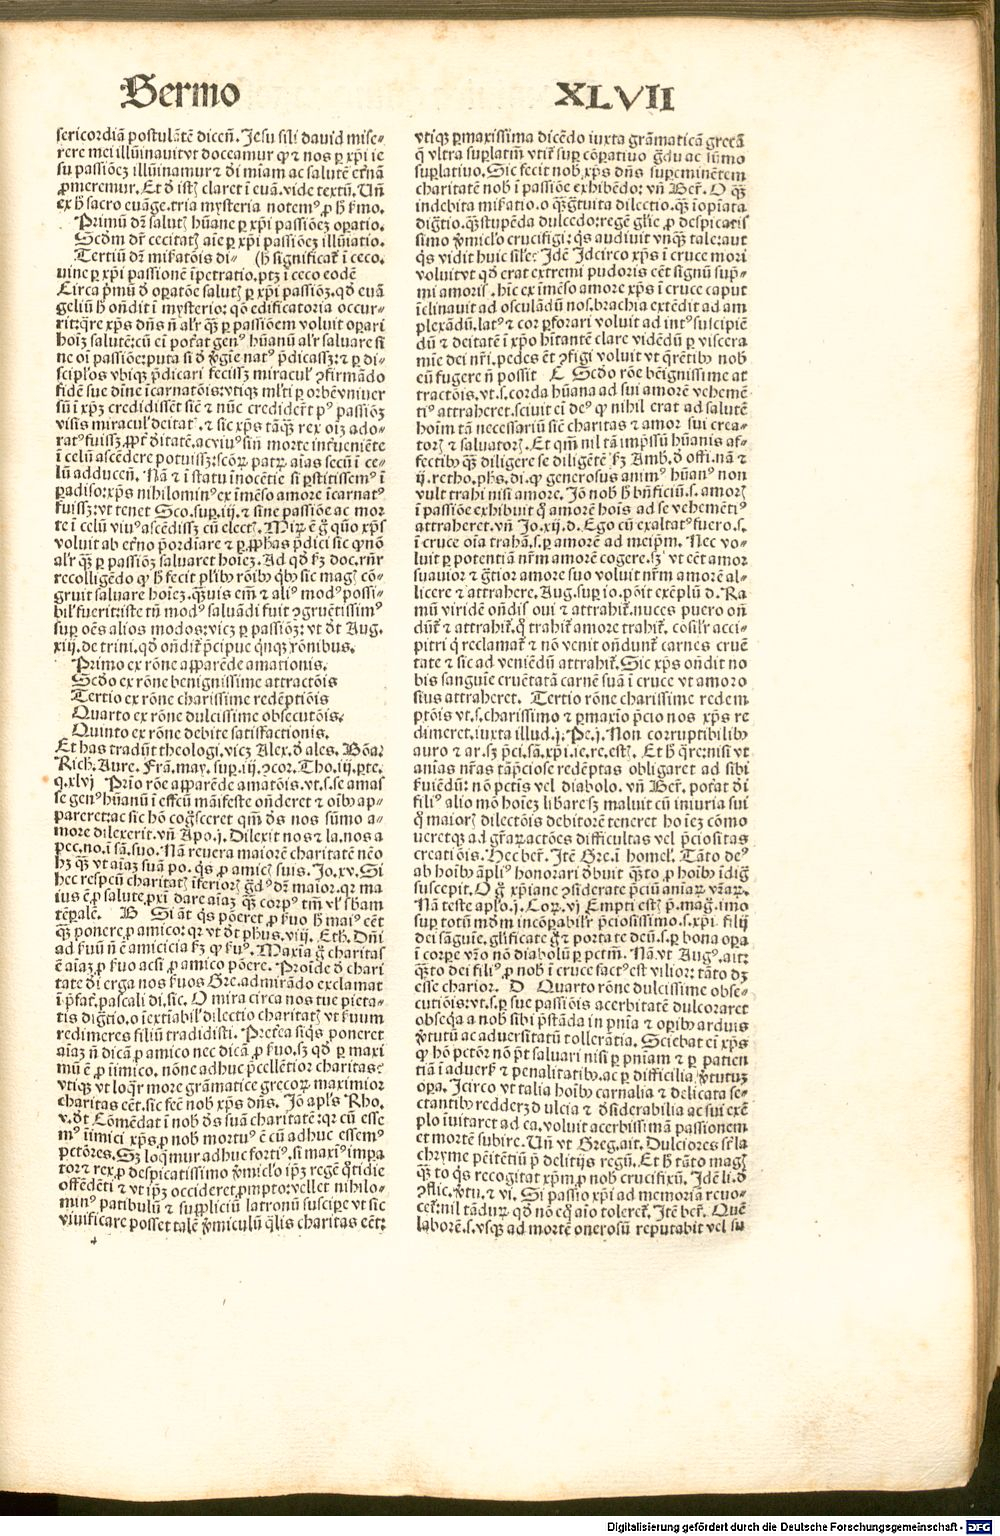 Sermo XLVII
sericordiā postulātē diceñ. Jesu fili david mise-
rere mei illūinavit vt doceamur qꝫ et nos ꝑ xp̄i ie
su passiōeꝫ illūinamur ⁊ dī miam ac salutē et̄nā
ꝓmeremur. Et ō istꝫ claret ī euā. vide textū. Uñ
ex hꝫ sacro euāge. tria mysteria notem⁹ ꝓ hꝫ s̄mo.
Primū dr̄ salutꝫ hūane ꝑ xp̄i passiōeꝫ oꝑatio.
Scdm dr̄ cecitatꝫ aīe ꝑ xp̄i passiōeꝫ illūiatio.
Tertiū dr̄ miſatōis di- (hꝫ significat̄ ī ceco.
uine ꝑ xp̄i passionē īpetratio. ptꝫ ī ceco eodē
Circa p̄mū ō oꝑatōe salutꝫ ꝑ xp̄i passiōꝫ. qō euā
geliū hꝫ oñdit ī mysterio: qō edificatoria occur-
rit: q̄re xp̄s dn̄s ñ alr̄ qꝫ̄ ꝑ passiōem voluit oꝑari
hoīꝫ salutē: cū ei pot̄at gen⁹ hūanū alr̄ saluare si
ne oī passiōe: puta si ō ꝟgie nat⁹ p̄dicassꝫ: ⁊ ꝑ di-
scipl'os vbiqꝫ p̄dicari fecissꝫ miracul' ꝯfirmādo
fidē sue dīne īcarnatōis: vtiqꝫ ml̄ti ꝑ orbē vniver
sū ī xp̄ꝫ credidissēt sic̄ ⁊ nūc credidert̄ pꝰ passiōꝫ
visis miracul' deitat⁹. ⁊ sic xp̄s tāqꝫ̄ rex oīꝫ ado-
rat⁹ fuissꝫ
ī celū ascēdere potuissꝫ: scōꝝ patꝝ aīas secū ī ce-
lū adduceñ. Nā ⁊ ī statu īnocētie si ꝑstitissem⁹ ī
ꝑadiso: xp̄s nihilomin⁹ ex īmēso amore īcarnat⁹
fuissꝫ: vt tenet Sco. suꝑ. iij. ⁊ sine passiōe ac mor
te ī celū viu⁹ ascēdissꝫ cū electꝫ. Miꝝ ē gͦ quō xp̄s
voluit ab et̄no p̄ordīare ⁊ ꝑ ꝓphas p̄dici sic qꝫ nō
alr̄ qꝫ̄ ꝑ passiōꝫ saluaret hoīeꝫ. Ad qō ẜꝫ doc. rn̄r
recolligēdo qꝫ hꝫ fecit pl'ibꝰ rōibꝰ qbꝰ sic magꝫ cō-
gruit saluare hoīeꝫ. Qꝫ̄uis em̄ ⁊ ali⁹ mod⁹ possi-
bil' fuerit: iste tñ mod⁹ saluādi fuit ꝯgruētissim⁹
suꝑ oēs alios modos: vicꝫ ꝑ passiōꝫ: vt dt̄ Aug.
xiij. de trini. qō oñdit̄ p̄cipue qnqꝫ rōnibus.
Primo ex rōne apparēde amationis.
Scdo ex rōne benignissime attractōis
Tertio ex rōne charissime redēptiōis
Quarto ex rōne dulcissime obsecutōis.
Quinto ex rōne debite satisfactionis.
Et has tradūt theologi. vicꝫ Alex. d ales. Bōa.
Rich. Aure. Frā. may. suꝑ. iij. ꝯcor. Tho. iij. ꝑte.
q. xlvj Prīo rōe apparēde amatōis. vt. s. se amas
se gen⁹ hūanū ī effcū māifeste onderet ⁊ oībꝰ ap-
pareret: ac sic hō cogͦsceret qm̄ ds̄ nos sūmo a-
more dilexerit. vñ Apo. j. Dilexit nos ⁊ la. nos a
pec. no. ī sā. suo. Nā revera maiorē charitatē nēo
hꝫ qꝫ̄ vt aīaꝫ suā po. qs̄ ꝓ amicꝫ suis. Jo. xv. Si
hec respcū charitatꝫ īferiorꝫ
ius ē ꝓ salute ꝓxī dare aīaꝫ qꝫ̄ corp⁹ tm̄ vl' s̄bam
tēꝑale. B Si āt qs̄ pōeret ꝓ suo hꝫ mai⁹ eēt
qꝫ̄ ponere ꝓ amico: qr vt dt̄ phus. viij. Eth. Dn̄i
ad suū ñ ē amicicia ẜꝫ qꝫ su⁹. Maxīa gͦ charitas
ē aīaꝫ ꝓ suo acsi ꝓ amico pōere. Proīde ō chari
tate dī erga nos suos Gre. admirādo exclamat
ī p̄fat̄. pascali di. sic. O mira circa nos tue pieta-
tis digt̄io. o īextīabil' dilectio charitatꝫ vt suum
redimeres filiū tradidisti. Pret̄ea siqs ꝓneret
aīaꝫ ñ dicā ꝓ amico nec dicā ꝓ suo. sꝫ qō ꝑ maxi
mū ē ꝓ iīmico. nōne adhuc p̄cellētior charitas:
vtiqꝫ vt loqr̄ more grāmatice grecoꝝ maximior
charitas eēt. sic fec̄ nobꝫ xp̄s dn̄s. Jō apl's Rho.
v. dt̄ Cōmēdat ī nobꝫ ds̄ suā charitatē: qr cū esse
m⁹ iīmici xp̄s ꝓ nobꝫ mortu⁹ ē cū adhuc essem⁹
petōres. Sꝫ loqmur adhuc forti⁹. si maxi⁹ impa
tor ⁊ rex ꝓ despicatissimo ꝟmicl'o ip̄ꝫ regē qͦtidie
offēdēti ⁊ vt ip̄ꝫ occideret ꝓmpto: vellet nihilo-
min⁹ patibulū ⁊ suppliciū latronū suscipe vt sic
viuificare posset talē ꝟmiculū qlis charitas eēt:
vtiqꝫ ꝑmaxissima dicēdo iuxta grāmaticā grecā
q̄ vltra suꝑlatiū vtit̄ suꝑ cōꝑatiuo gͣdu ac sūmo
suꝑlatiuo. Sic fecit nobꝫ xp̄s dn̄s suꝑeminētem
charitatē nobꝫ ī passiōe exhibēdo: vñ Ber̄. O qꝫ̄
indebita miſatio. o qꝫ̄ gͣtuita dilectio. qꝫ̄ īopīata
digt̄io. qꝫ̄ stupēda dulcedo: regē gl'ie ꝓ despicatis
simo ꝟmicl'o crucifigi: qs̄ audiuit vnqꝫ̄ tale: aut
qs̄ vidit huic sil'e: Jdē Jdcirco xp̄s ī cruce mori
voluit vt qō erat extremi pudoris eēt signū sup̄-
mi amoris. hīc ex īmēso amore xp̄s ī cruce caput
īclinauit ad osculādū nos. brachia extēdit ad am
plexādū. lat⁹ ⁊ cor ꝑforari voluit ad int⁹ suscipiē
dū ⁊ deitatē ī xp̄o hītantē clare vidēdū ꝑ viscera
mīe dei nr̄i. pedes ēt ꝯfigi voluit vt q̄rētibꝰ nobꝫ
eū fugere ñ possit C Scdo rōe bēignissime at
tractōis. vt. s. corda hūana ad sui amorē vehemē
ti⁹ attraheret. sciuit ei de⁹ qꝫ nihil erat ad salutē
hoīm tā necessariū sic̄ charitas ⁊ amor sui crea-
torꝫ ⁊ saluatorꝫ. Et qm̄ nil tā imp̄ssū hūanis af-
fectibꝰ qꝫ̄ diligere se diligētē ẜꝫ Amb. ō offi. nā ⁊
ij. retho. phs. di. qꝫ generosus anim⁹ hūan⁹ non
vult trahi nisi amore. Jō nobꝫ hꝫ bn̄ficiū. s. amorꝫ
ī passiōe exhibuit q̄ amorē hoīs ad se vehemēti⁹
attraheret. vñ Jo. xij. d. Ego cū exaltat⁹ fuero. s.
ī cruce oīa trahā. s. ꝑ amorē ad meip̄m. Nec vo-
luit ꝑ potentiā nr̄m amorē cogere. sꝫ vt eēt amor
suavior ⁊ gͣtior amore suo voluit nr̄m amorē al-
licere ⁊ attrahere. Aug. suꝑ io. pōit exēplū d. Ra
mū viridē oñdis oui ⁊ attrahit̄. nuces puero oñ
dūt̄ ⁊ attrahit̄. q̄ trahit̄ amore trahit̄. cosil'r acci-
pitri q̄ reclamat̄ ⁊ nō venit oñdunt̄ carnes cruē
tate ⁊ sic ad veniēdū attrahit̄. Sic xp̄s oñdit no
bis sanguīe cruētatā carnē suā ī cruce vt amoro
sius attraheret. Tertio rōne charissime redem
ptōis vt. s. charissimo ⁊ ꝑmaxīo p̄cio nos xp̄s re
dimeret. iuxta illud. j. Pe. j. Non corruptibilibꝰ
auro ⁊ ar. sꝫ p̄ci. sā. xp̄i. ie. re. estꝫ. Et hꝫ q̄re: nisi vt
animas nr̄as tāp̄ciose redēptas obligaret ad sibi
ſuiēdū: nō petīs vel diabolo. vñ Ber̄. pot̄at dī
fili⁹ alio mō hoīeꝫ libare sꝫ maluit cū iniuria sui
q̄ maiorꝫ dilectōis debitorē teneret hoīeꝫ cōmo
ueretqꝫ ad gr̄aꝝ actōes difficultas vel p̄ciositas
creatiōis. Hec ber̄. Jtē Gre. ī homel'. Tāto de⁹
ab hoībꝰ ampli⁹ honorari dbuit qꝫ̄to ꝓ hoībꝰ īdigͣ
suscepit. O gͦ xp̄iane ꝯsiderate p̄ciū aīaꝝ vr̄aꝝ.
Nā teste aplo. j. Coꝝ. vj Empti estꝫ p̄. mag̃. imo
suꝑ totū mōm incōꝑabil'r p̄ciosissimo. s. xp̄i. filij
dei sāguīe. gl'ificate gͦ ⁊ portate deū. s. ꝑ bona oꝑa
ī corꝑe vr̄o nō diabolū ꝑ petm̄. Nā. vt Aug⁹. ait:
qꝫ̄to dei fili⁹ ꝓ nobꝫ ī cruce fact⁹ est vilior: tāto dꝫ
esse charior. D Quarto rōne dulcissime obse-
cutiōis: vt. s. ꝑ sue passiōis acerbitatē dulcoraret
obseqa a nobꝫ sibi p̄stāda in pn̄ia ⁊ oꝑibꝰ arduis
ꝟtutū ac aduersitatū tollerātia. Sciebat ei xp̄s
qꝫ hō petōr nō p̄t saluari nisi ꝑ pn̄iam ⁊ ꝑ patien
tiā ī aduerẜ ⁊ penalitatibꝰ. ac ꝑ difficilia ꝟtutuꝫ
oꝑa. Jcirco vt talia hoībꝰ carnalia ⁊ delicata se-
ctantibꝰ redderꝫ dulcia ⁊ ōsiderabilia ac sui exē
plo īuitaret ad ea. voluit acerbissimā passionem
et mortē subire. Uñ vt Greg. ait. Dulciores st̄ la
chryme pēitētiū p̄ delitijs regū. Et hꝫ tāto magꝫ
qꝫ̄to qs recogitat xp̄m ꝓ nobꝫ crucifixū. Jdē li. ō
ꝯflic. ꝟtu. ⁊ vi. Si passio xp̄i ad memoriā reuo-
cet̄: nil tā durꝫ qō nō eq̄ aīo toleret̄. Jtē ber̄. Quē
laborē. s. vsqꝫ ad mortē onerosū reputabit vel su
Digitalisierung gefördert durch die Deutsche Forschungsgemeinschaft - DFG